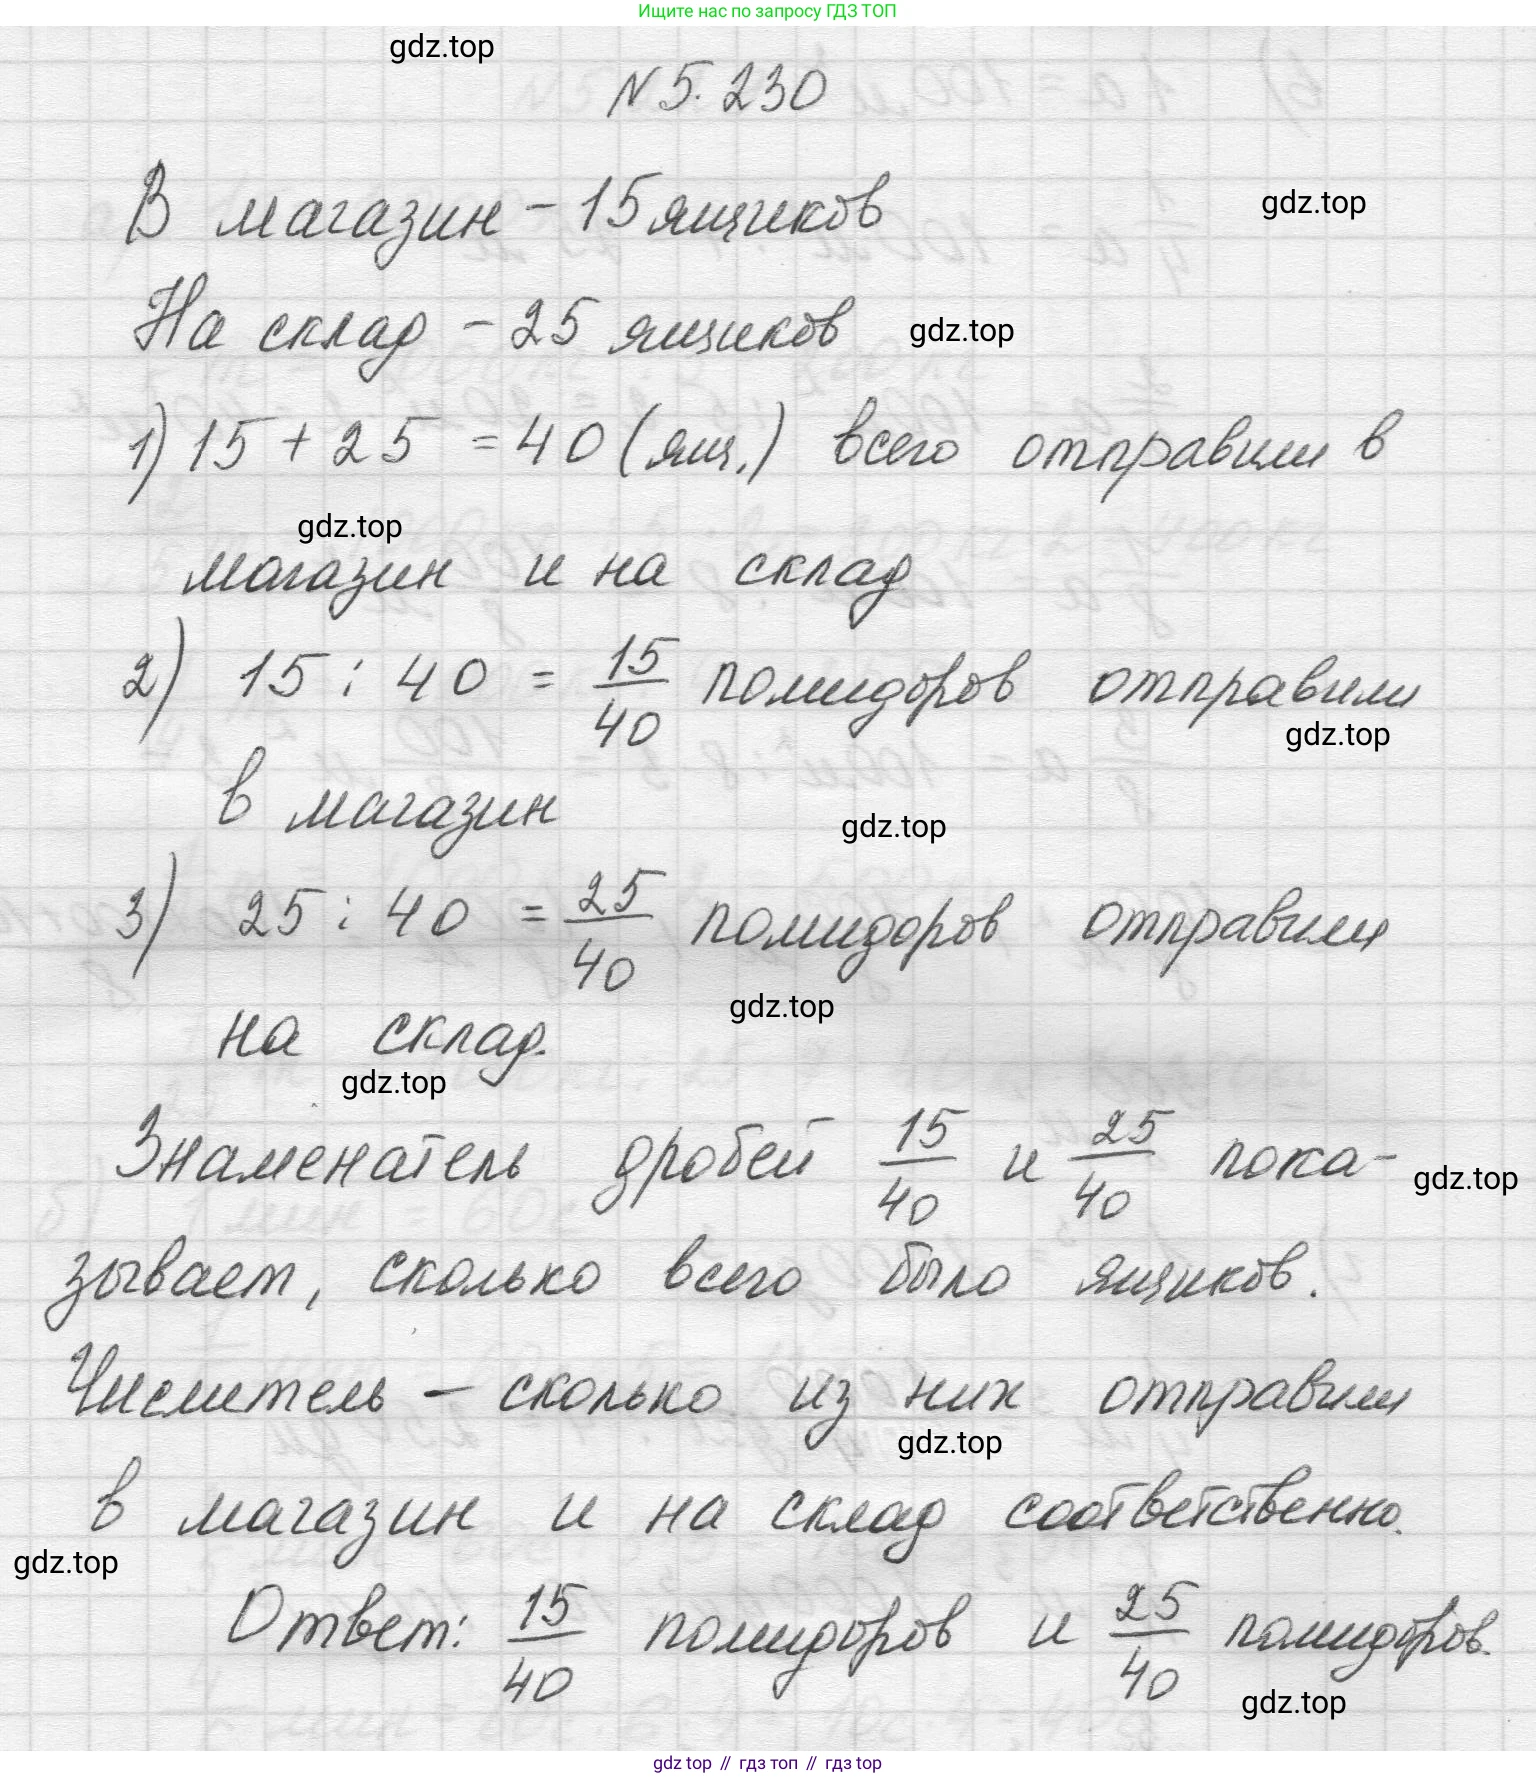 Ищите нас по запросу ГДЗ ТОП
gdz.top
N 5. 230
В магазин - 15 ящиков
gdz.top
На склад - 25 ящиков
gdz.top
1) 15 + 25 = 40 (ящ.) всего отправили в
gdz.top
магазин и на склад
2) 15 : 40 = 15/40 помидоров отправили
gdz.top
в магазин
gdz.top
3) 25 : 40 = 25/40 помидоров отправили
gdz.top
на склад.
gdz.top
Знаменатель дробей 15/40 и 25/40 пока-
gdz.top
зывает, сколько всего было ящиков.
Числитель - сколько из них отправили
gdz.top
в магазин и на склад соответственно.
gdz.top
Ответ: 15/40 помидоров и 25/40 помидоров.
gdz.top
gdz top // гдз топ // гдз top